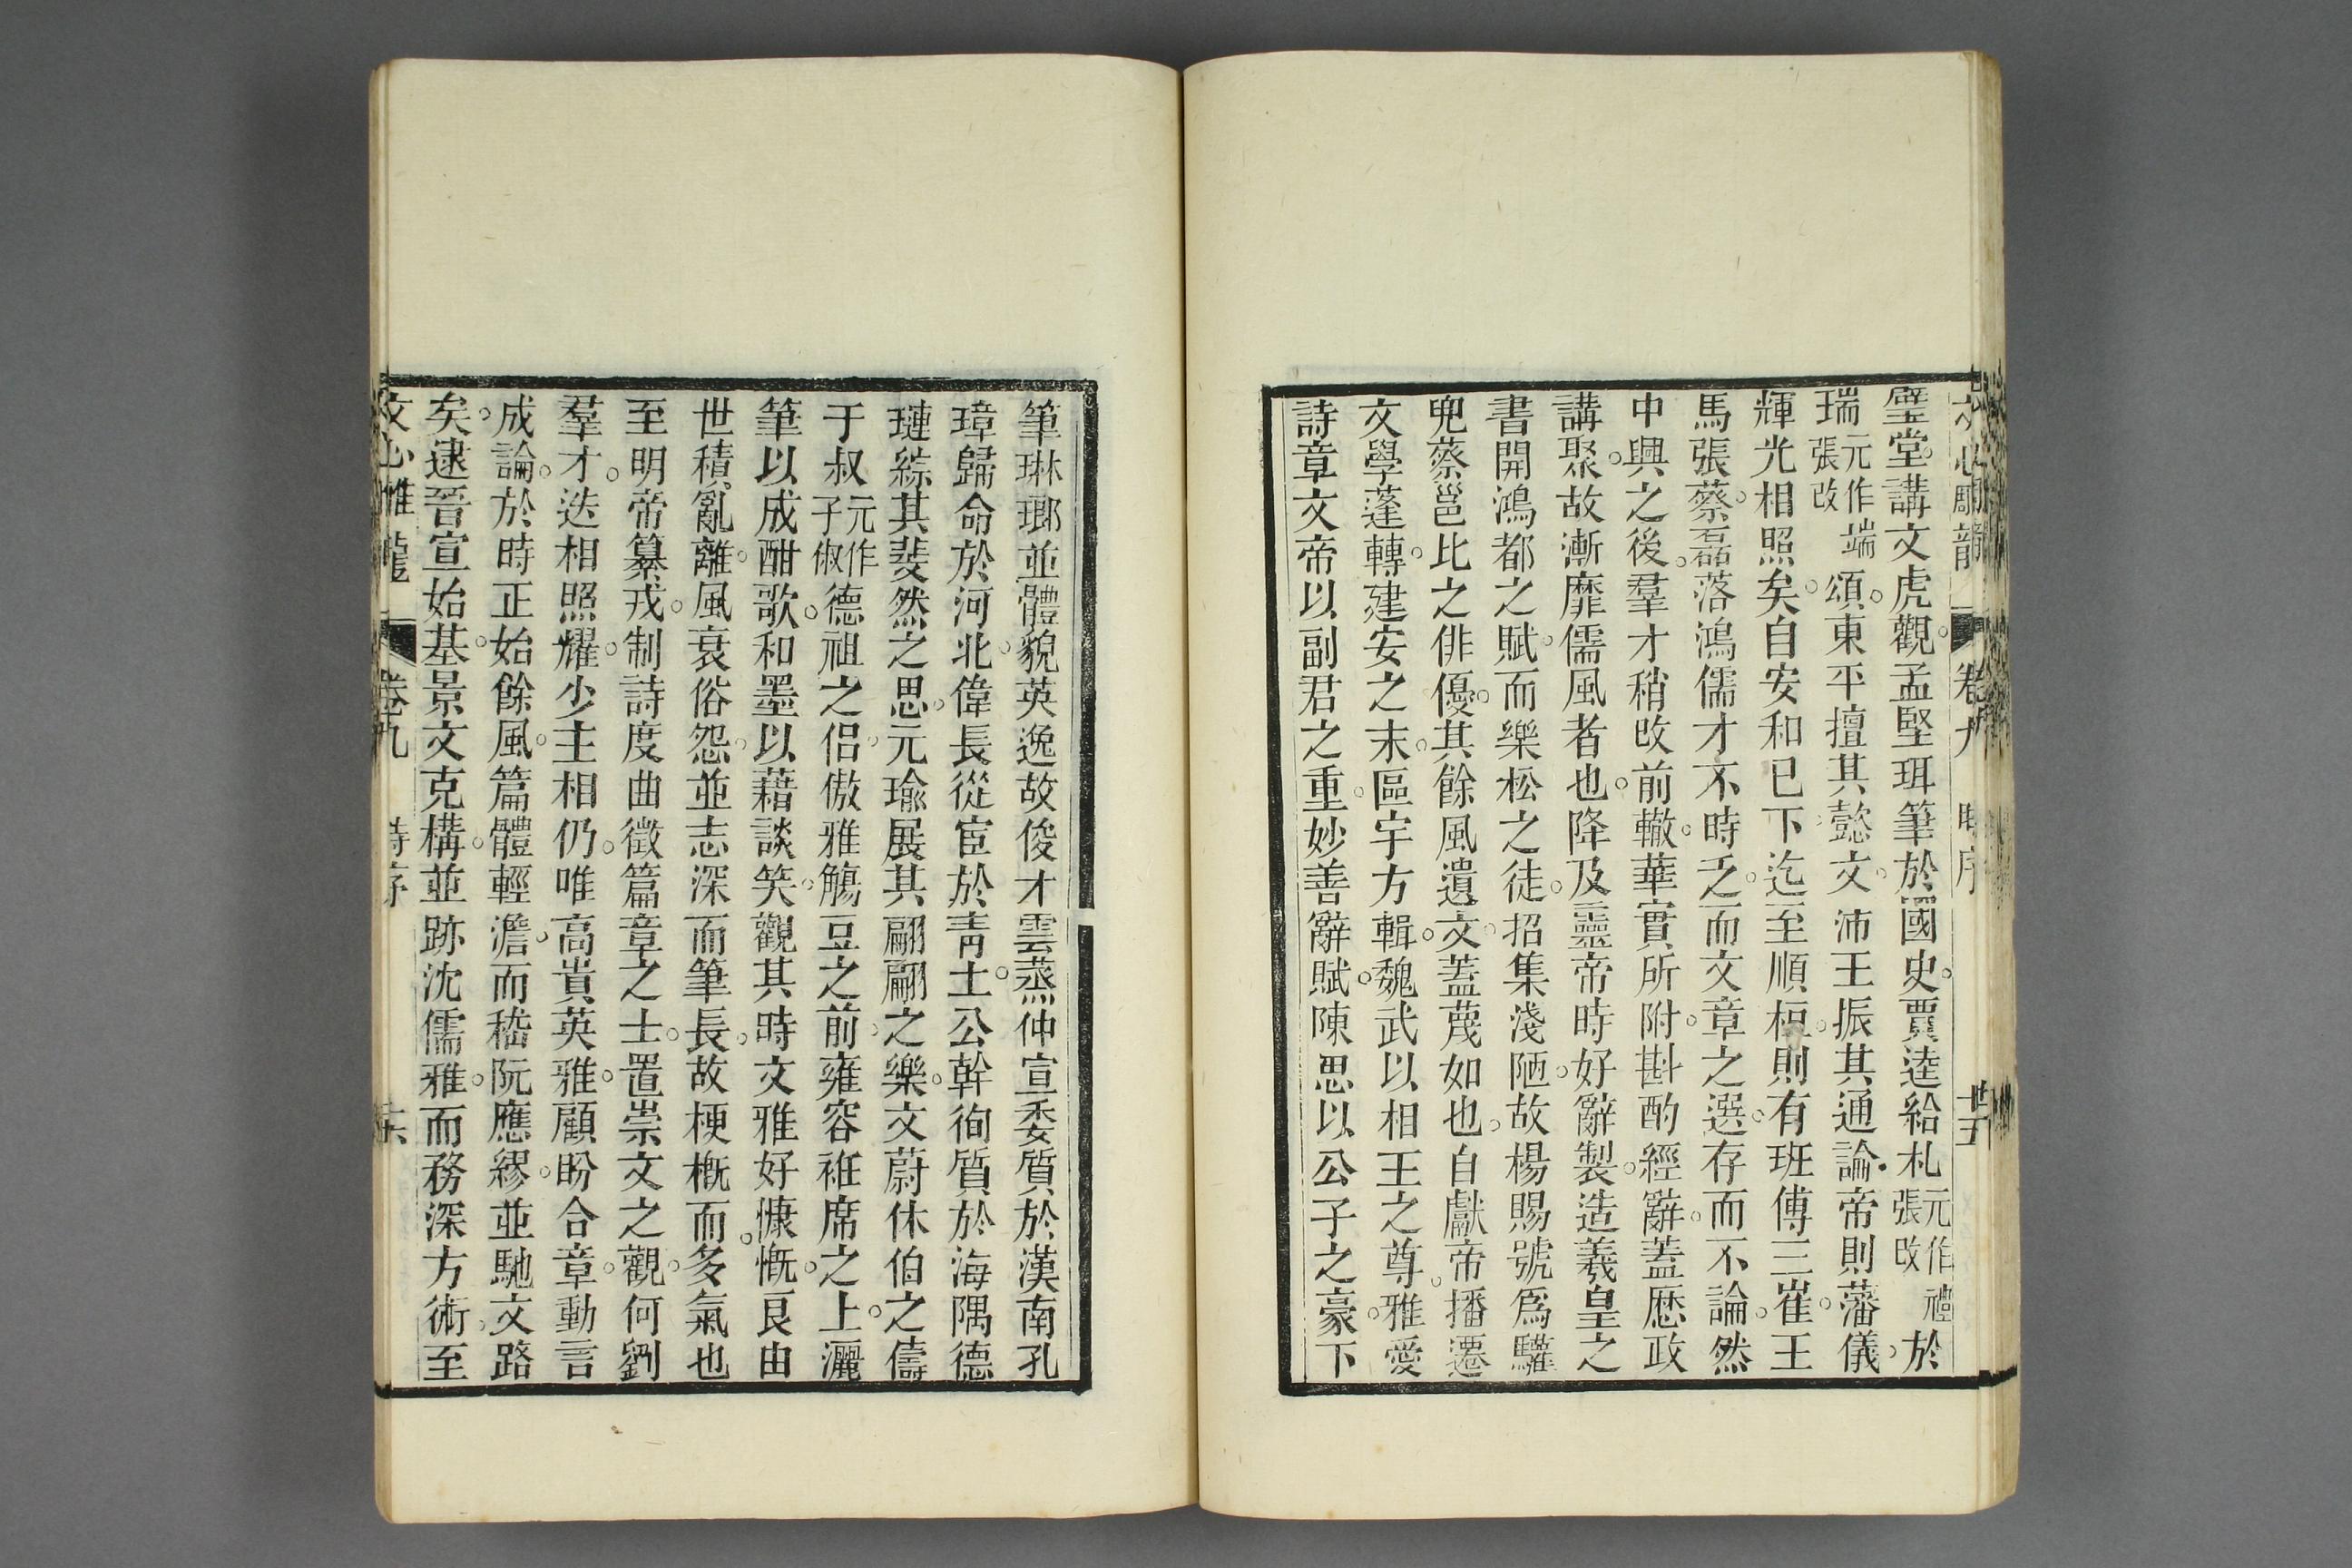 文心雕龍 卷九 時序 十五
璧堂講文虎觀孟堅珥筆於國史賈逵給札元作禮張改於
瑞元作端張改頌東平擅其懿文沛王振其通論帝則藩儀
輝光相照矣自安和已下迄至順桓則有班傅三崔王
馬張蔡磊落鴻儒才不時乏而文章之選存而不論然
中興之後羣才稍改前轍華實所附斟酌經辭蓋歷政
講聚故漸靡儒風者也降及靈帝時好辭製造羲皇之
書開鴻都之賦而樂松之徒招集淺陋故楊賜號爲驩
兜蔡邕比之俳優其餘風遺文蓋蔑如也自獻帝播遷
文學蓬轉建安之末區宇方輯魏武以相王之尊雅愛
詩章文帝以副君之重妙善辭賦陳思以公子之豪下
筆琳瑯並體貌英逸故俊才雲蒸仲宣委質於漢南孔
璋歸命於河北偉長從宦於靑土公幹徇質於海隅德
璉綜其斐然之思元瑜展其翩翩之樂文蔚休伯之儔
于叔元作子俶德祖之侶傲雅觴豆之前雍容衽席之上灑
筆以成酣歌和墨以藉談笑觀其時文雅好慷慨良由
世積亂離風衰俗怨並志深而筆長故梗槪而多氣也
至明帝纂戎制詩度曲徵篇章之士置崇文之觀何劉
羣才迭相照耀少主相仍唯高貴英雅顧盼合章動言
成論於時正始餘風篇體輕澹而嵇阮應繆並馳文路
矣逮晉宣始基景文克構並跡沈儒雅而務深方術至
文心雕龍 卷九 時序 十六